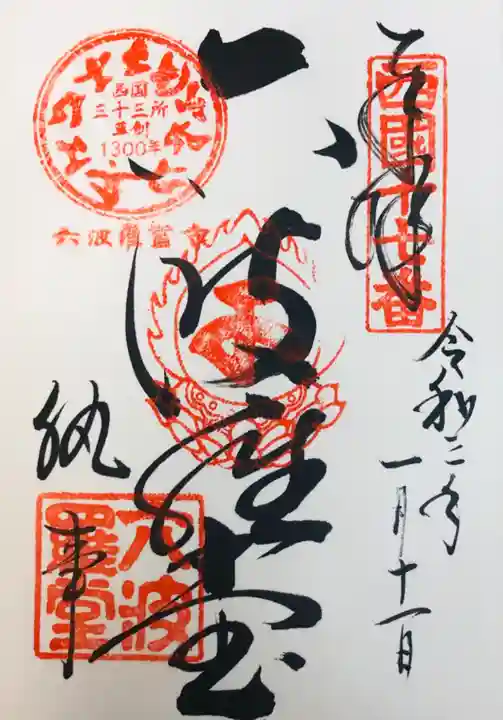 奉拝
西國十七番
令和二年
一月十一日
六波羅堂
西国
三十三所
草創
1300年
六波羅蜜寺
執事
六波
羅堂